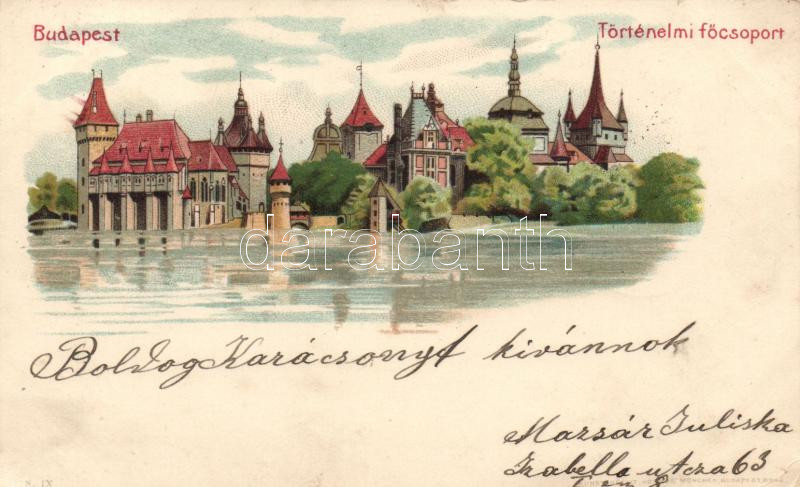 Budapest
Történelmi főcsoport
darabanth
Boldog Karácsonyt kívánnok
Mazsár Juliska
Izabella utcza 63
N. IX